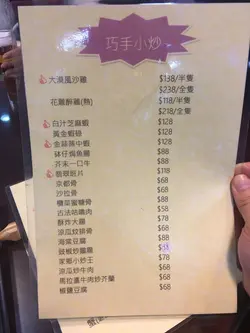 巧手小炒
大漠風沙雞 $138/半隻
$238/全隻
花雕醉雞(熱) $118/半隻
$218/全隻
白汁芝麻蝦 $128
黃金蝦碌 $128
金蒜蒸中蝦 $128
砵仔焗魚腸 $88
芥末一口牛 $88
翡翠斑片 $118
京都骨 $68
沙拉骨 $68
欖菜蜜糖骨
古法咕嚕肉 $68
酥炸大腸 $78
涼瓜炆排骨 $68
海棠豆腐 $88
豉椒炒鵝腸
家鄉小炒王 $78
涼瓜炒牛肉 $68
馬拉盞牛肉炒芥蘭 $68
椒鹽豆腐 $68